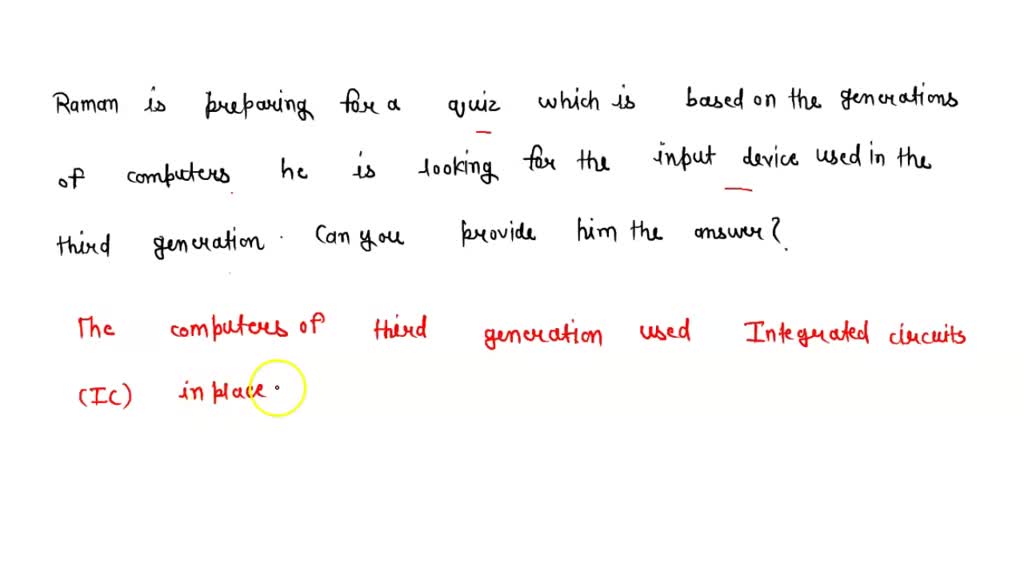 Raman is preparing for a quiz which is based on the generations
of computers he is looking for the input device used in the
third generation. Can you provide him the answer?
The computers of third generation used Integrated circuits
(IC) in place